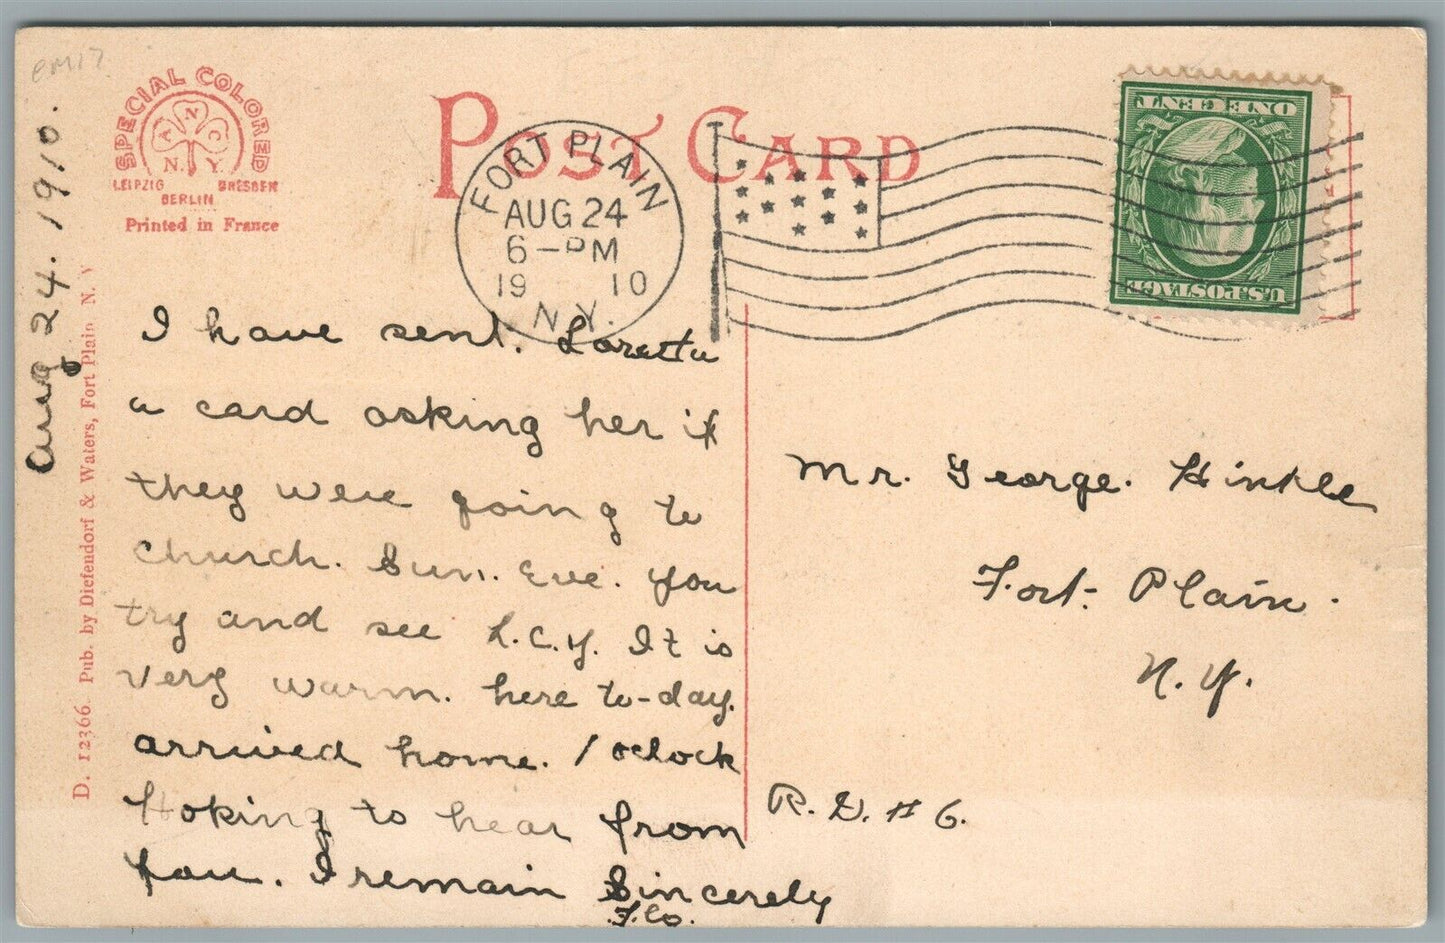 em17
Aug 24. 1910.
SPECIAL COLORED
A N C
N. Y.
LEIPZIG DRESDEN
BERLIN
Printed in France
POST CARD
FORT PLAIN
AUG 24
6-PM
1910
N.Y.
ONE CENT
U.S. POSTAGE
D. 12366. Pub. by Diefendorf & Waters, Fort Plain N. Y
I have sent. Loretta
a card asking her if
they were going to
church. Sun. Eve. you
try and see L.C.Y. It is
very warm. here to-day.
arrived home. 1 oclock
Hoking to hear from
you. I remain Sincerely
Flo.
Mr. George. Hinkle
Fort. Plain.
N. Y.
R. D. # 6.